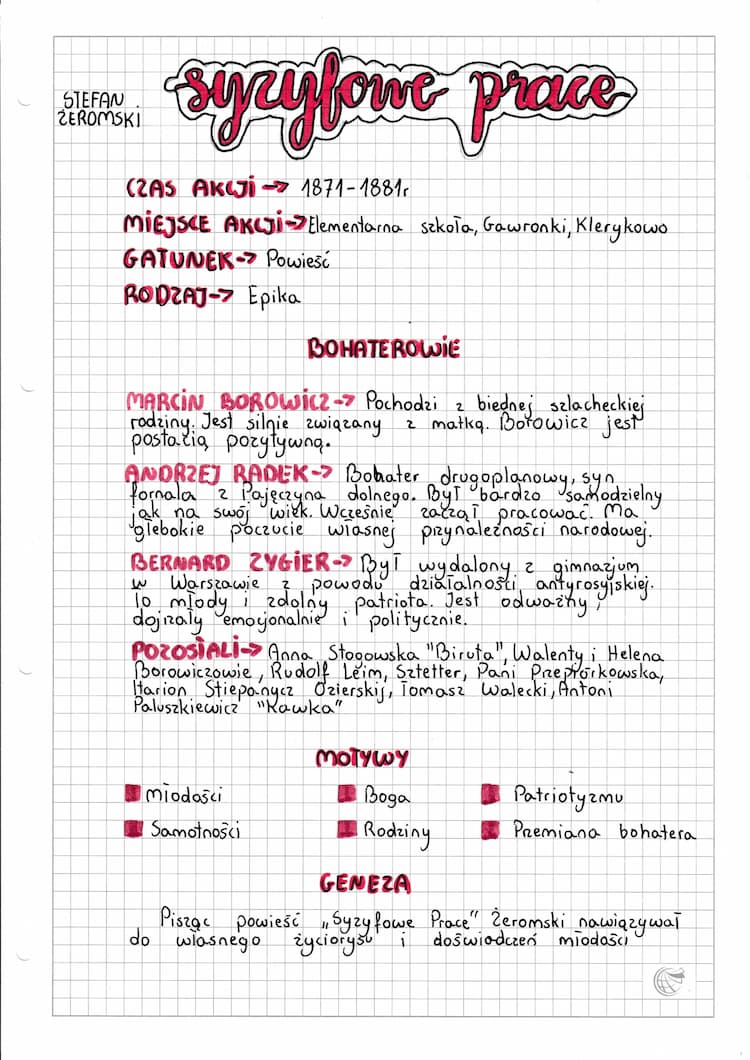 syzyfowe prace
STEFAN
ŻEROMSKI
CZAS AKCJI → 1871-1881r
MIEJSCE AKCJI → Elementarna szkoła, Gawronki, Klerykowo
GATUNEK → Powieść
RODZAJ → Epika
BOHATEROWIE
MARCIN BOROWICZ → Pochodzi z biednej szlacheckiej
rodziny. Jest silnie związany z matką. Borowicz jest
postacią pozytywną.
ANDRZEJ RADEK → Bohater drugoplanowy, syn
fornala z Pajęczyna dolnego. Był bardzo samodzielny
jak na swój wiek. Wcześnie zaczął pracować. Ma
głebokie poczucie własnej przynależności narodowej.
BERNARD ZYGIER → Był wydalony z gimnazjum
w Warszawie z powodu działalności antyrosyjskiej.
To młody i zdolny patriota. Jest odważny,
dojrzały emocjonalnie i politycznie.
POZOSTALI → Anna Stogowska "Biruta", Walenty i Helena
Borowiczowie, Rudolf Leim, Sztetter, Pani Przepiórkowska,
Ilarion Stiepanycz Ozierskij, Tomasz Walecki, Antoni
Paluszkiewicz "Kawka"
MOTYWY
Młodości Boga Patriotyzmu
Samotności Rodziny Przemiana bohatera
GENEZA
Pisząc powieść „Syzyfowe Prace" Żeromski nawiązywał
do własnego życiorysu i doświadczeń młodości